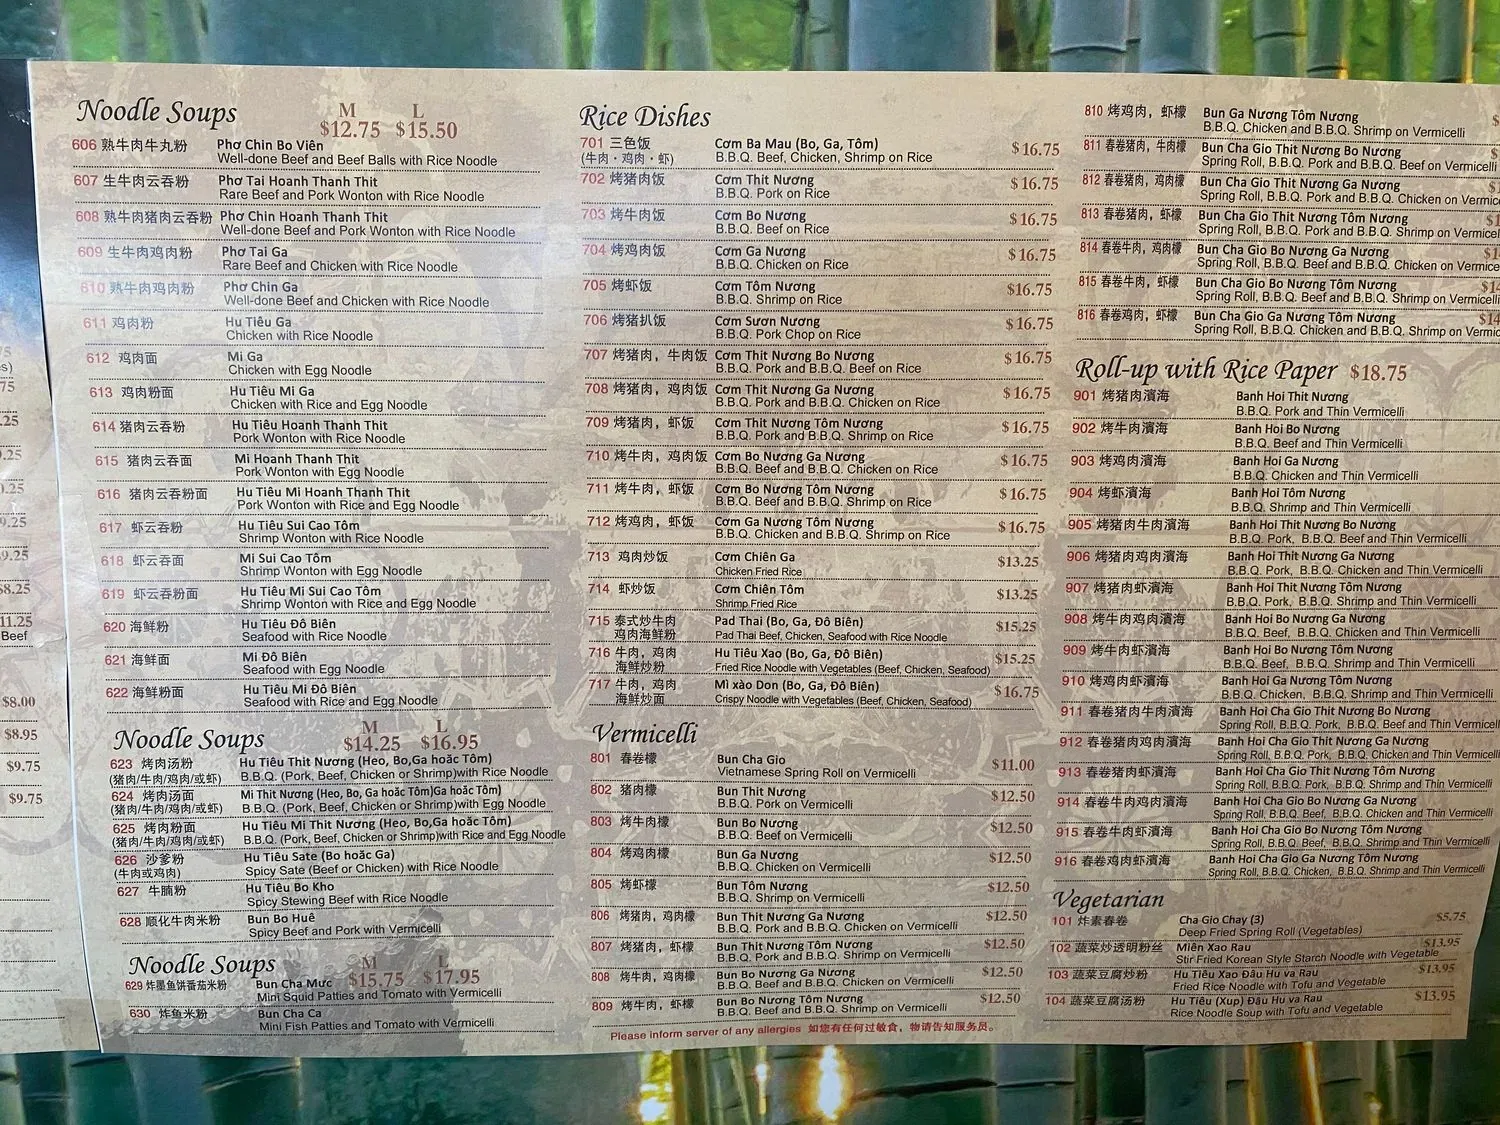 75
s)
75
.25
9.25
0.25
9.25
9.25
$8.25
11.25
Beef
$8.00
$8.95
$9.75
$9.75
Noodle Soups M L
$12.75 $15.50
606 熟牛肉牛丸粉 Phơ Chin Bo Viên
Well-done Beef and Beef Balls with Rice Noodle
607 生牛肉云吞粉 Phơ Tai Hoanh Thanh Thit
Rare Beef and Pork Wonton with Rice Noodle
608 熟牛肉猪肉云吞粉 Phơ Chin Hoanh Thanh Thit
Well-done Beef and Pork Wonton with Rice Noodle
609 生牛肉鸡肉粉 Phơ Tai Ga
Rare Beef and Chicken with Rice Noodle
610 熟牛肉鸡肉粉 Phơ Chin Ga
Well-done Beef and Chicken with Rice Noodle
611 鸡肉粉 Hu Tiêu Ga
Chicken with Rice Noodle
612 鸡肉面 Mi Ga
Chicken with Egg Noodle
613 鸡肉粉面 Hu Tiêu Mi Ga
Chicken with Rice and Egg Noodle
614 猪肉云吞粉 Hu Tiêu Hoanh Thanh Thit
Pork Wonton with Rice Noodle
615 猪肉云吞面 Mi Hoanh Thanh Thit
Pork Wonton with Egg Noodle
616 猪肉云吞粉面 Hu Tiêu Mi Hoanh Thanh Thit
Pork Wonton with Rice and Egg Noodle
617 虾云吞粉 Hu Tiêu Sui Cao Tôm
Shrimp Wonton with Rice Noodle
618 虾云吞面 Mi Sui Cao Tôm
Shrimp Wonton with Egg Noodle
619 虾云吞粉面 Hu Tiêu Mi Sui Cao Tôm
Shrimp Wonton with Rice and Egg Noodle
620 海鲜粉 Hu Tiêu Đô Biên
Seafood with Rice Noodle
621 海鲜面 Mi Đô Biên
Seafood with Egg Noodle
622 海鲜粉面 Hu Tiêu Mi Đô Biên
Seafood with Rice and Egg Noodle
Noodle Soups M L
$14.25 $16.95
623 烤肉汤粉 Hu Tiêu Thit Nương (Heo, Bo,Ga hoăc Tôm)
(猪肉/牛肉/鸡肉/或虾) B.B.Q. (Pork, Beef, Chicken or Shrimp)with Rice Noodle
624 烤肉汤面 Mi Thit Nương (Heo, Bo, Ga hoăc Tôm)Ga hoăc Tôm)
(猪肉/牛肉/鸡肉/或虾) B.B.Q. (Pork, Beef, Chicken or Shrimp)with Egg Noodle
625 烤肉粉面 Hu Tiêu Mi Thit Nương (Heo, Bo,Ga hoăc Tôm)
(猪肉/牛肉/鸡肉/或虾) B.B.Q. (Pork, Beef, Chicken or Shrimp)with Rice and Egg Noodle
626 沙爹粉 Hu Tiêu Sate (Bo hoăc Ga)
(牛肉或鸡肉) Spicy Sate (Beef or Chicken) with Rice Noodle
627 牛腩粉 Hu Tiêu Bo Kho
Spicy Stewing Beef with Rice Noodle
628 顺化牛肉米粉 Bun Bo Huê
Spicy Beef and Pork with Vermicelli
Noodle Soups M L
$15.75 $17.95
629 炸墨鱼饼番茄米粉 Bun Cha Mưc
Mini Squid Patties and Tomato with Vermicelli
630 炸鱼米粉 Bun Cha Ca
Mini Fish Patties and Tomato with Vermicelli
Rice Dishes
701 三色饭 Cơm Ba Mau (Bo, Ga, Tôm) $16.75
(牛肉·鸡肉·虾) B.B.Q. Beef, Chicken, Shrimp on Rice
702 烤猪肉饭 Cơm Thit Nương $16.75
B.B.Q. Pork on Rice
703 烤牛肉饭 Cơm Bo Nương $16.75
B.B.Q. Beef on Rice
704 烤鸡肉饭 Cơm Ga Nương $16.75
B.B.Q. Chicken on Rice
705 烤虾饭 Cơm Tôm Nương $16.75
B.B.Q. Shrimp on Rice
706 烤猪扒饭 Cơm Sươn Nương $16.75
B.B.Q. Pork Chop on Rice
707 烤猪肉，牛肉饭 Cơm Thit Nương Bo Nương $16.75
B.B.Q. Pork and B.B.Q. Beef on Rice
708 烤猪肉，鸡肉饭 Cơm Thit Nương Ga Nương $16.75
B.B.Q. Pork and B.B.Q. Chicken on Rice
709 烤猪肉，虾饭 Cơm Thit Nương Tôm Nương $16.75
B.B.Q. Pork and B.B.Q. Shrimp on Rice
710 烤牛肉，鸡肉饭 Cơm Bo Nương Ga Nương $16.75
B.B.Q. Beef and B.B.Q. Chicken on Rice
711 烤牛肉，虾饭 Cơm Bo Nương Tôm Nương $16.75
B.B.Q. Beef and B.B.Q. Shrimp on Rice
712 烤鸡肉，虾饭 Cơm Ga Nương Tôm Nương $16.75
B.B.Q. Chicken and B.B.Q. Shrimp on Rice
713 鸡肉炒饭 Cơm Chiên Ga $13.25
Chicken Fried Rice
714 虾炒饭 Cơm Chiên Tôm $13.25
Shrimp Fried Rice
715 泰式炒牛肉 Pad Thai (Bo, Ga, Đô Biên) $15.25
鸡肉海鲜粉 Pad Thai Beef, Chicken, Seafood with Rice Noodle
716 牛肉，鸡肉 Hu Tiêu Xao (Bo, Ga, Đô Biên) $15.25
海鲜炒粉 Fried Rice Noodle with Vegetables (Beef, Chicken, Seafood)
717 牛肉，鸡肉 Mì xào Don (Bo, Ga, Đô Biên) $16.75
海鲜炒面 Crispy Noodle with Vegetables (Beef, Chicken, Seafood)
Vermicelli
801 春卷檬 Bun Cha Gio $11.00
Vietnamese Spring Roll on Vermicelli
802 猪肉檬 Bun Thit Nương $12.50
B.B.Q. Pork on Vermicelli
803 烤牛肉檬 Bun Bo Nương $12.50
B.B.Q. Beef on Vermicelli
804 烤鸡肉檬 Bun Ga Nương $12.50
B.B.Q. Chicken on Vermicelli
805 烤虾檬 Bun Tôm Nương $12.50
B.B.Q. Shrimp on Vermicelli
806 烤猪肉，鸡肉檬 Bun Thit Nương Ga Nương $12.50
B.B.Q. Pork and B.B.Q. Chicken on Vermicelli
807 烤猪肉，虾檬 Bun Thit Nương Tôm Nương $12.50
B.B.Q. Pork and B.B.Q. Shrimp on Vermicelli
808 烤牛肉，鸡肉檬 Bun Bo Nương Ga Nương $12.50
B.B.Q. Beef and B.B.Q. Chicken on Vermicelli
809 烤牛肉，虾檬 Bun Bo Nương Tôm Nương $12.50
B.B.Q. Beef and B.B.Q. Shrimp on Vermicelli
Please inform server of any allergies 如您有任何过敏食，物请告知服务员。
810 烤鸡肉，虾檬 Bun Ga Nương Tôm Nương $
B.B.Q. Chicken and B.B.Q. Shrimp on Vermicelli
811 春卷猪肉，牛肉檬 Bun Cha Gio Thit Nương Bo Nương $
Spring Roll, B.B.Q. Pork and B.B.Q. Beef on Vermicell
812 春卷猪肉，鸡肉檬 Bun Cha Gio Thit Nương Ga Nương $1
Spring Roll, B.B.Q. Pork and B.B.Q. Chicken on Vermice
813 春卷猪肉，虾檬 Bun Cha Gio Thit Nương Tôm Nương $1
Spring Roll, B.B.Q. Pork and B.B.Q. Shrimp on Vermicel
814 春卷牛肉，鸡肉檬 Bun Cha Gio Bo Nương Ga Nương $1
Spring Roll, B.B.Q. Beef and B.B.Q. Chicken on Vermice
815 春卷牛肉，虾檬 Bun Cha Gio Bo Nương Tôm Nương $14
Spring Roll, B.B.Q. Beef and B.B.Q. Shrimp on Vermicelli
816 春卷鸡肉，虾檬 Bun Cha Gio Ga Nương Tôm Nương $14
Spring Roll, B.B.Q. Chicken and B.B.Q. Shrimp on Vermic
Roll-up with Rice Paper $18.75
901 烤猪肉濱海 Banh Hoi Thit Nương
B.B.Q. Pork and Thin Vermicelli
902 烤牛肉濱海 Banh Hoi Bo Nương
B.B.Q. Beef and Thin Vermicelli
903 烤鸡肉濱海 Banh Hoi Ga Nương
B.B.Q. Chicken and Thin Vermicelli
904 烤虾濱海 Banh Hoi Tôm Nương
B.B.Q. Shrimp and Thin Vermicelli
905 烤猪肉牛肉濱海 Banh Hoi Thit Nương Bo Nương
B.B.Q. Pork, B.B.Q. Beef and Thin Vermicelli
906 烤猪肉鸡肉濱海 Banh Hoi Thit Nương Ga Nương
B.B.Q. Pork, B.B.Q. Chicken and Thin Vermicelli
907 烤猪肉虾濱海 Banh Hoi Thit Nương Tôm Nương
B.B.Q. Pork, B.B.Q. Shrimp and Thin Vermicelli
908 烤牛肉鸡肉濱海 Banh Hoi Bo Nương Ga Nương
B.B.Q. Beef, B.B.Q. Chicken and Thin Vermicelli
909 烤牛肉虾濱海 Banh Hoi Bo Nương Tôm Nương
B.B.Q. Beef, B.B.Q. Shrimp and Thin Vermicelli
910 烤鸡肉虾濱海 Banh Hoi Ga Nương Tôm Nương
B.B.Q. Chicken, B.B.Q. Shrimp and Thin Vermicelli
911 春卷猪肉牛肉濱海 Banh Hoi Cha Gio Thit Nương Bo Nương
Spring Roll, B.B.Q. Pork, B.B.Q. Beef and Thin Vermicell
912 春卷猪肉鸡肉濱海 Banh Hoi Cha Gio Thit Nương Ga Nương
Spring Roll, B.B.Q. Pork, B.B.Q. Chicken and Thin Vermicelli
913 春卷猪肉虾濱海 Banh Hoi Cha Gio Thit Nương Tôm Nương
Spring Roll, B.B.Q. Pork, B.B.Q. Shrimp and Thin Vermicelli
914 春卷牛肉鸡肉濱海 Banh Hoi Cha Gio Bo Nương Ga Nương
Spring Roll, B.B.Q. Beef, B.B.Q. Chicken and Thin Vermicelli
915 春卷牛肉虾濱海 Banh Hoi Cha Gio Bo Nương Tôm Nương
Spring Roll, B.B.Q. Beef, B.B.Q. Shrimp and Thin Vermicelli
916 春卷鸡肉虾濱海 Banh Hoi Cha Gio Ga Nương Tôm Nương
Spring Roll, B.B.Q. Chicken, B.B.Q. Shrimp and Thin Vermicelli
Vegetarian
101 炸素春卷 Cha Gio Chay (3) $5.75
Deep Fried Spring Roll (Vegetables)
102 蔬菜炒透明粉丝 Miên Xao Rau $13.95
Stir Fried Korean Style Starch Noodle with Vegetable
103 蔬菜豆腐炒粉 Hu Tiêu Xao Đâu Hu va Rau $13.95
Fried Rice Noodle with Tofu and Vegetable
104 蔬菜豆腐汤粉 Hu Tiêu (Xup) Đâu Hu va Rau $13.95
Rice Noodle Soup with Tofu and Vegetable